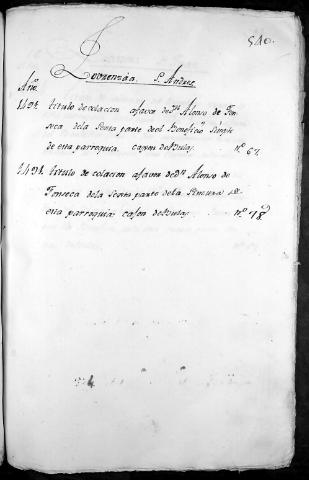 540.
Lorenzán. S. Andres
Año.
1494. titulo de colacion afavor de Dn. Alonso de Fon
seca dela Sexta parte del Beneficio Simple
de esta parroquia. cajon de Bulas. nº. 67.
1494. titulo de colacion afavor de Dn. Alonso de
Fonseca dela Sexta parte dela sincura de
esta parroquia: cajon de Bulas. nº. 78.